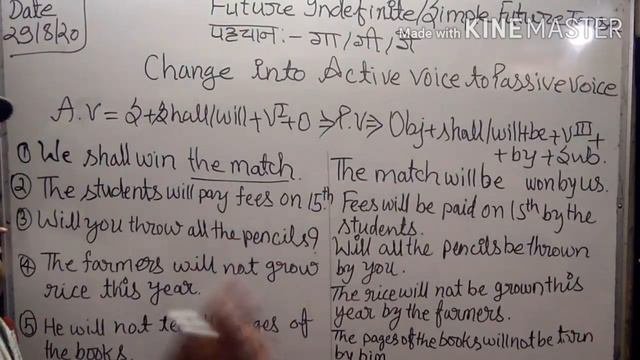 Date
29/8/20
Future Indefinite/Simple Future Tense
पहचान:- गा/गी/गे
Made with KINEMASTER
Change into Active voice to Passive voice
A.V = S+Shall/will+VI+O ⇒P.V⇒ Obj+shall/will+be+VIII+
+by+Sub.
① We shall win the match.
② The students will pay fees on 15th
③ Will you throw all the pencils?
④ The farmers will not grow
rice this year.
⑤ He will not of
the books.
The match will be won by us.
Fees will be paid on 15th by the
students.
Will all the pencils be thrown
by you.
The rice will not be grown this
year by the farmers.
The pages of the books will not be turn
by him